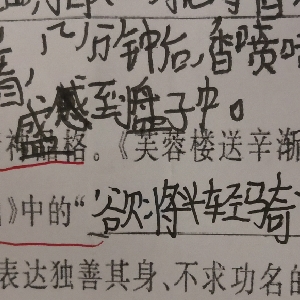 着，几分钟后，香喷
盛到盘子中。
格。《芙蓉楼送辛渐
》中的“欲将轻骑
表达独善其身、不求功名的